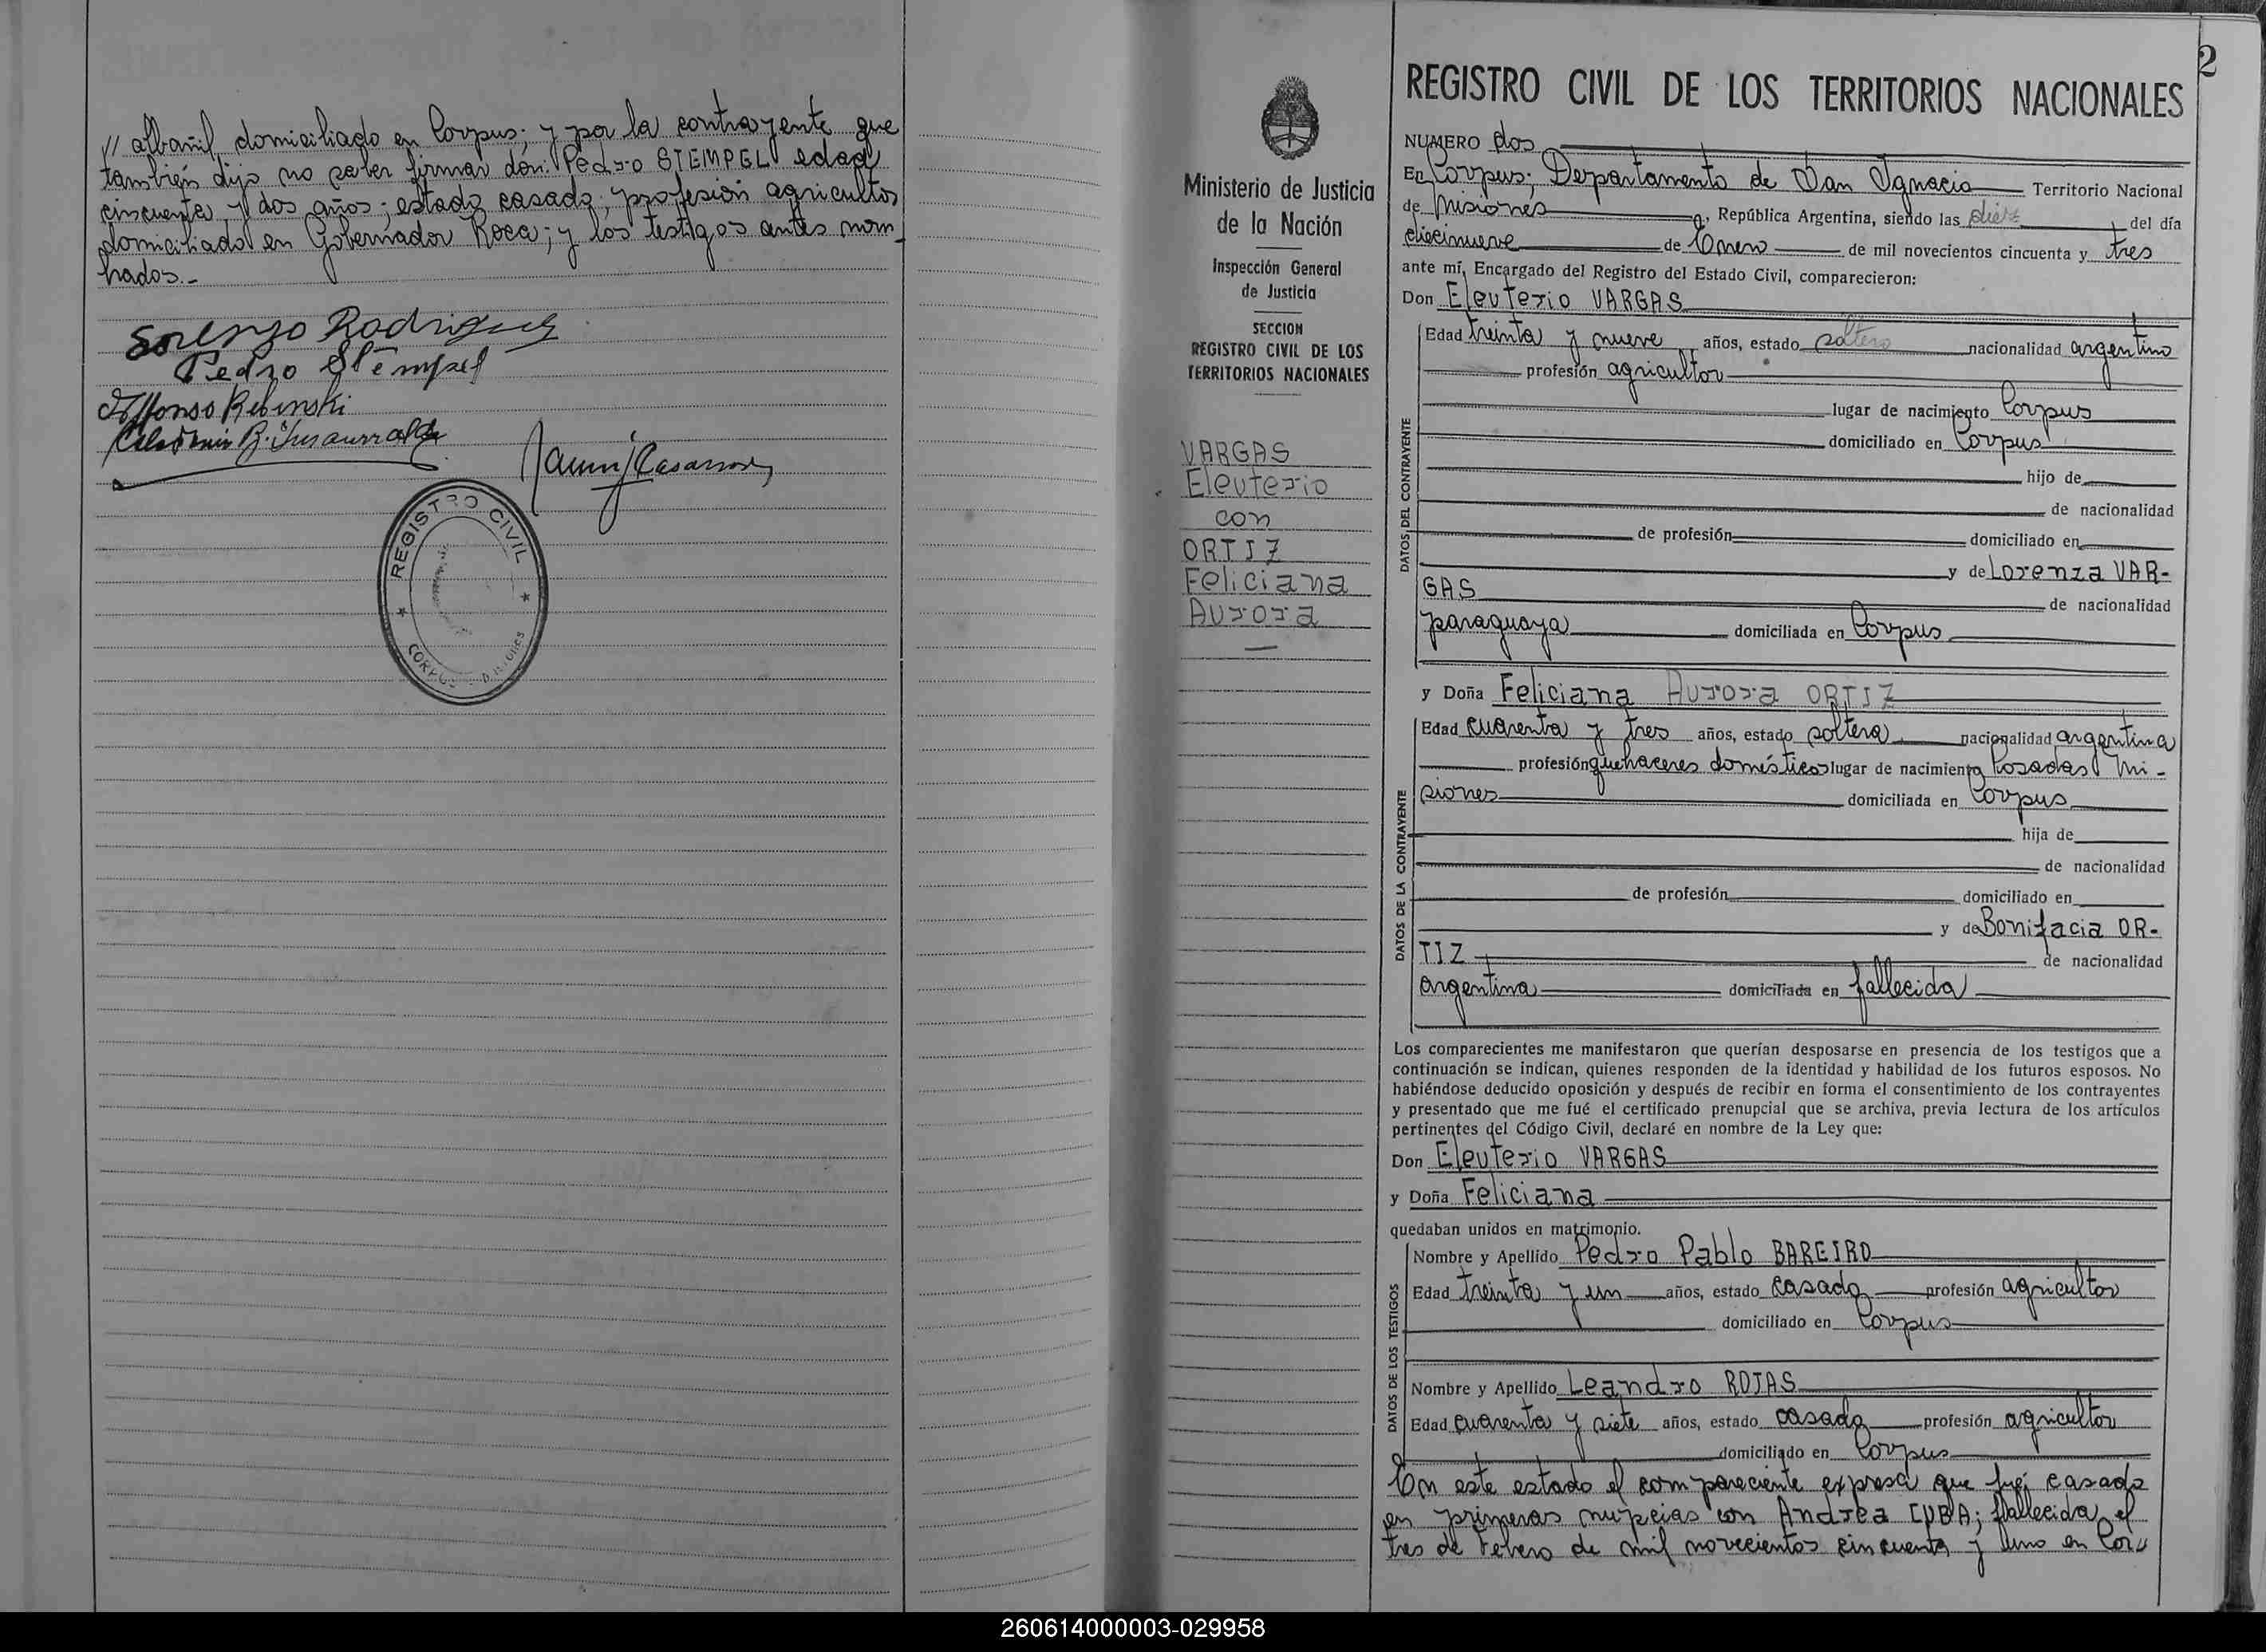 // albañil domiciliado en Corpus; y por la contrayente que
también dijo no saber firmar don: Pedro STEMPEL edad
cincuenta y dos años; estado casado; profesión agricultor
domiciliado en Gobernador Roca; y los testigos antes nom-
brados.-
Lorenzo Rodriguez
Pedro Stempel
Alfonso Rebinski
REGISTRO CIVIL
CORPUS - MISIONES
Ministerio de Justicia
de la Nación
Inspección General
de Justicia
SECCION
REGISTRO CIVIL DE LOS
TERRITORIOS NACIONALES
VARGAS
Eleuterio
con
ORTIZ
Feliciana
Aurora
2
REGISTRO CIVIL DE LOS TERRITORIOS NACIONALES
NUMERO dos
En Corpus; Departamento de San Ignacio Territorio Nacional
de Misiones, República Argentina, siendo las diez del día
diecinueve de Enero de mil novecientos cincuenta y tres
ante mí, Encargado del Registro del Estado Civil, comparecieron:
Don Eleuterio VARGAS
DATOS DEL CONTRAYENTE
Edad treinta y nueve años, estado soltero nacionalidad argentino
profesión agricultor
lugar de nacimiento Corpus
domiciliado en Corpus
hijo de
de nacionalidad
de profesión domiciliado en
y de Lorenza VAR-
GAS de nacionalidad
paraguaya domiciliada en Corpus
y Doña Feliciana Aurora ORTIZ
DATOS DE LA CONTRAYENTE
Edad cuarenta y tres años, estado soltera nacionalidad argentina
profesión quehaceres domésticos lugar de nacimiento Posadas Mi-
siones domiciliada en Corpus
hija de
de nacionalidad
de profesión domiciliado en
y de Bonifacia OR-
TIZ de nacionalidad
argentina domiciliada en fallecida
Los comparecientes me manifestaron que querían desposarse en presencia de los testigos que a
continuación se indican, quienes responden de la identidad y habilidad de los futuros esposos. No
habiéndose deducido oposición y después de recibir en forma el consentimiento de los contrayentes
y presentado que me fué el certificado prenupcial que se archiva, previa lectura de los artículos
pertinentes del Código Civil, declaré en nombre de la Ley que:
Don Eleuterio VARGAS
y Doña Feliciana
quedaban unidos en matrimonio.
DATOS DE LOS TESTIGOS
Nombre y Apellido Pedro Pablo BAREIRO
Edad treinta y un años, estado casado profesión agricultor
domiciliado en Corpus
Nombre y Apellido Leandro ROJAS
Edad cuarenta y siete años, estado casado profesión agricultor
domiciliado en Corpus
En este estado el compareciente expresa que fué casado
en primeras nupcias con Andrea CUBA; fallecida el
tres de Febrero de mil novecientos cincuenta y uno en Cor//
260614000003-029958